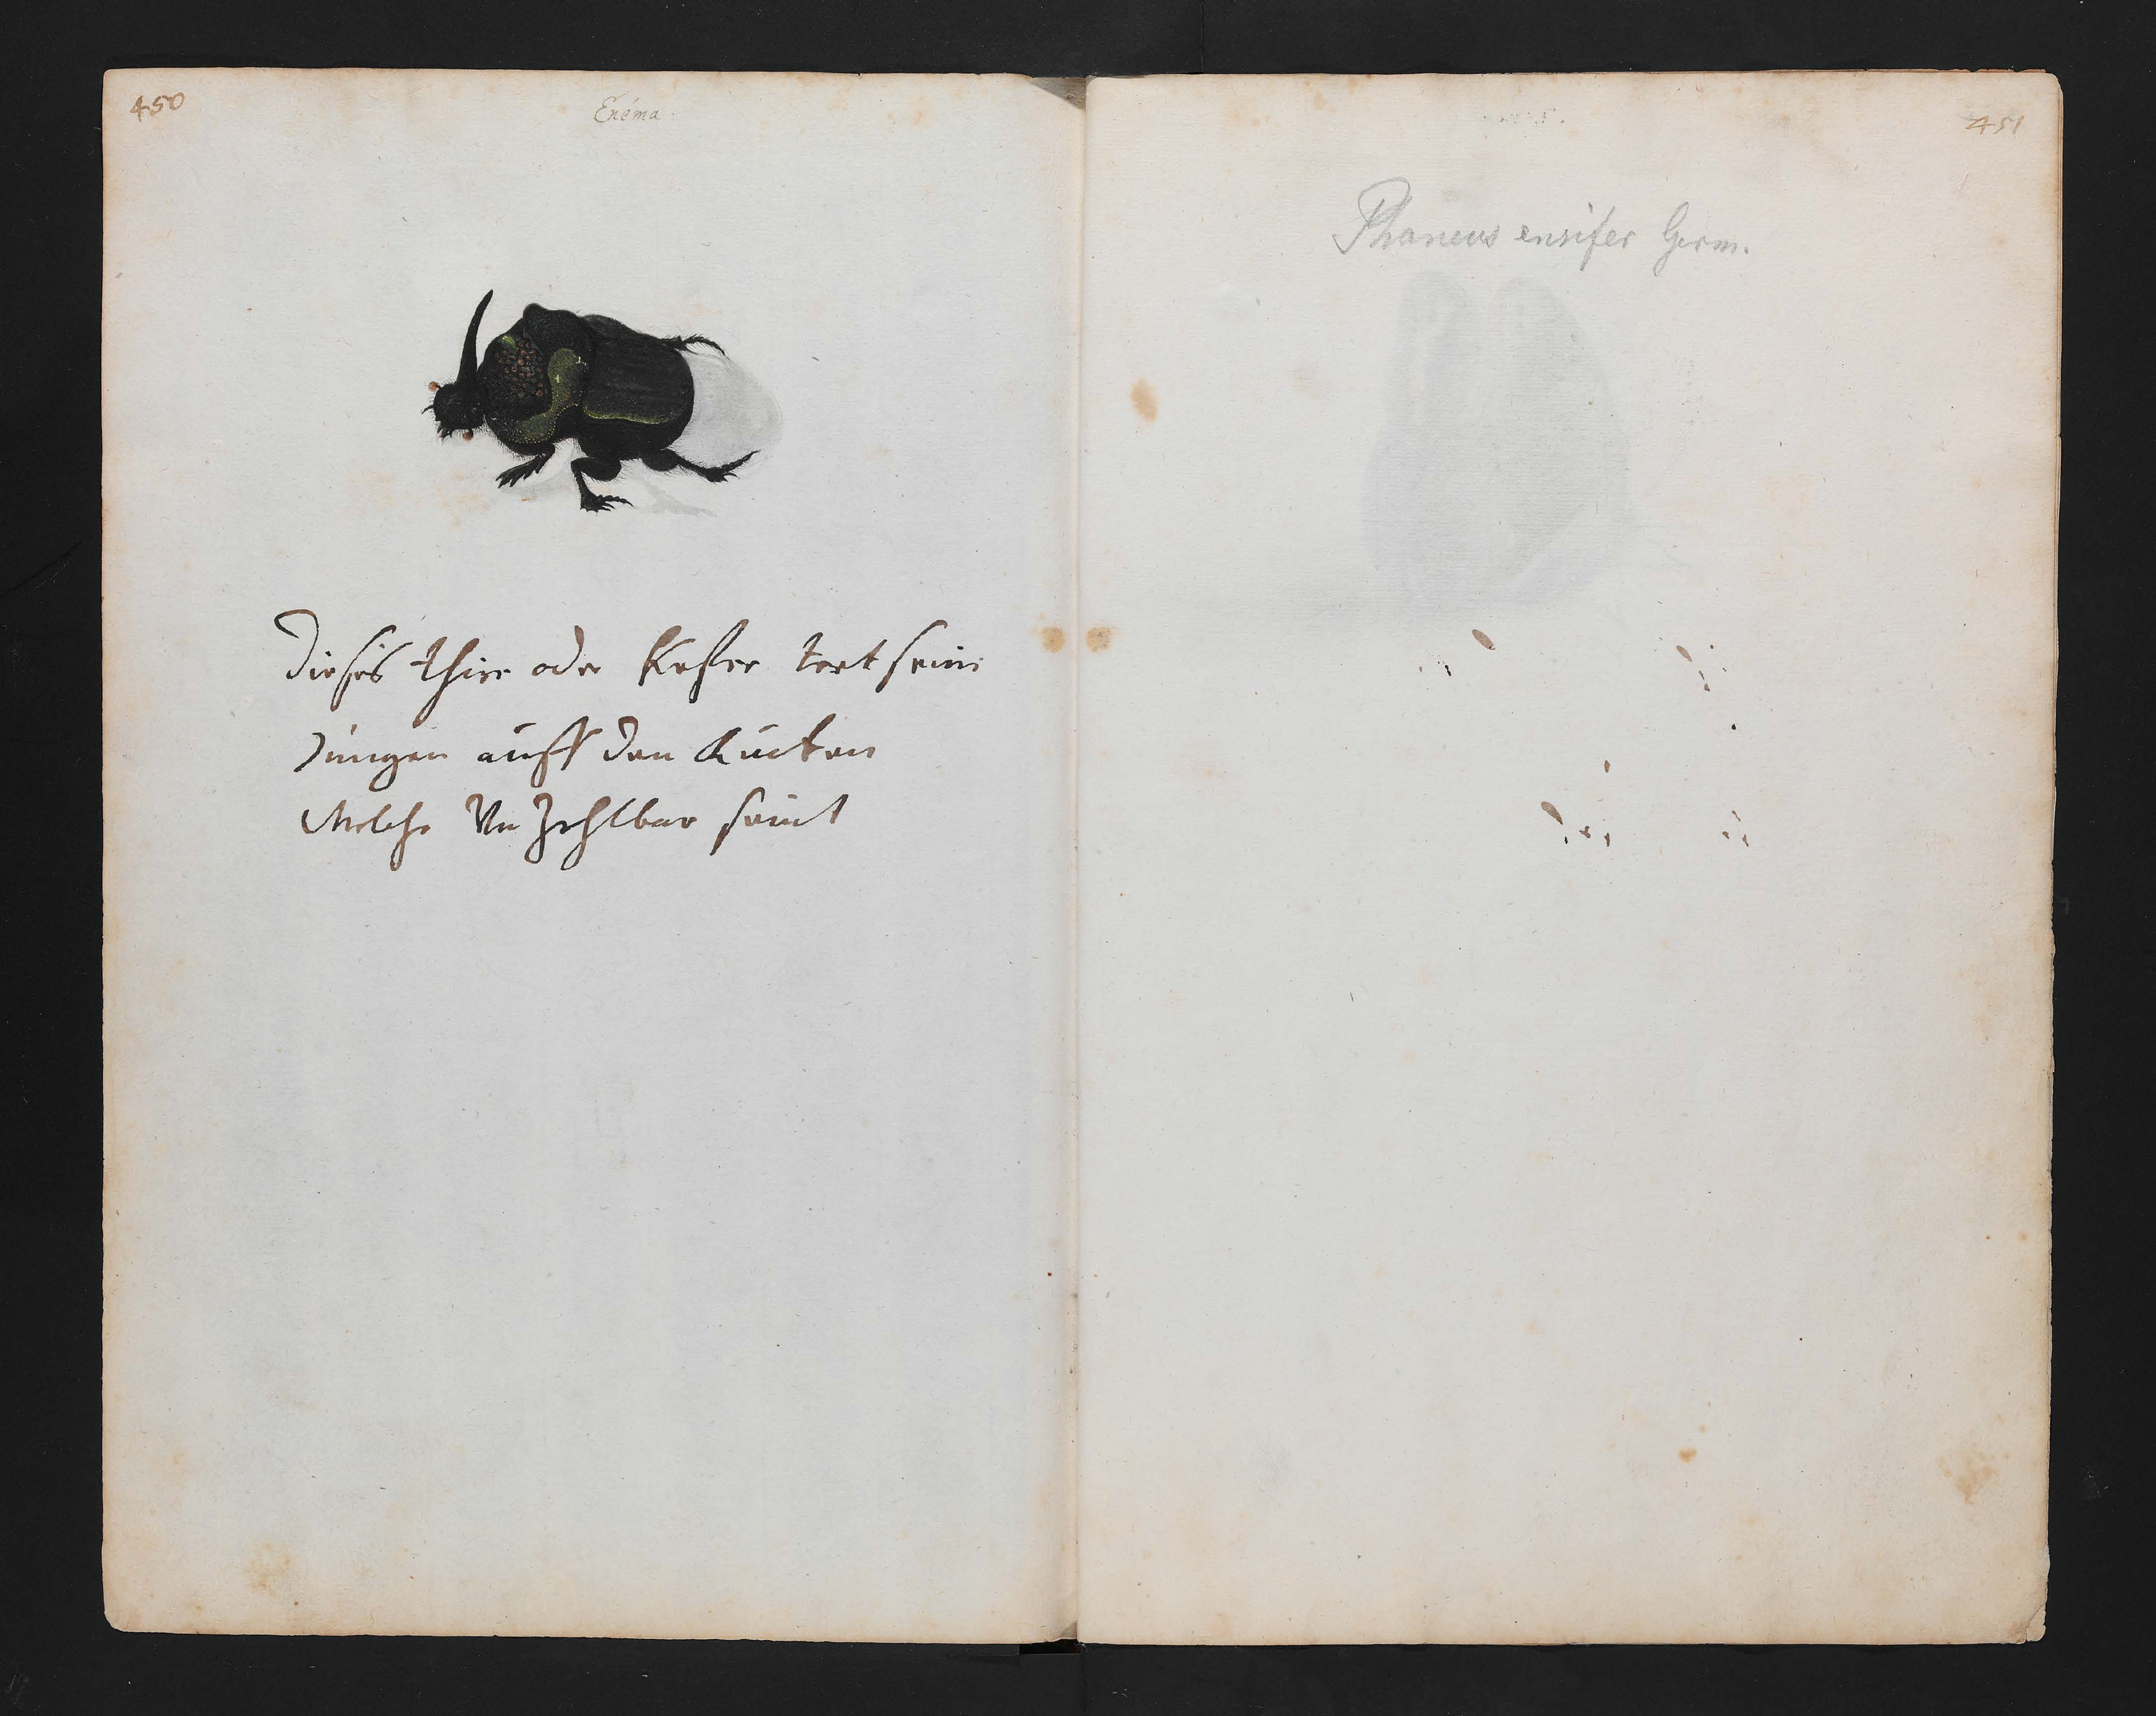 450
Enéma
Dieses thir oder Kefer tret sein
Jungen auff den Rucken
Welche Un Zehlbar seint
451
Phaneus ensifer Germ.